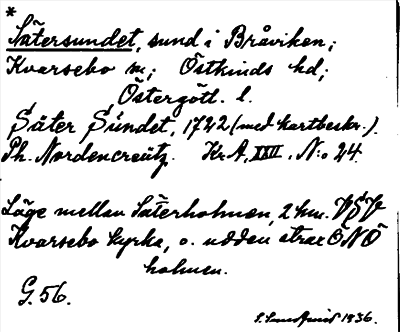 *
Sätersundet, sund i Bråviken;
Kvarsebo sn; Östkinds hd;
Östergötl. l.
Säter Sundet, 1722 (med kartbeskr.).
Ph. Nordencreütz. Kr A, XXII, N:o 24.
Läge mellan Säterholmen, 2 km. VSV
Kvarsebo kyrka, o. udden strax ÖNÖ
holmen.
G. 56.
1936.